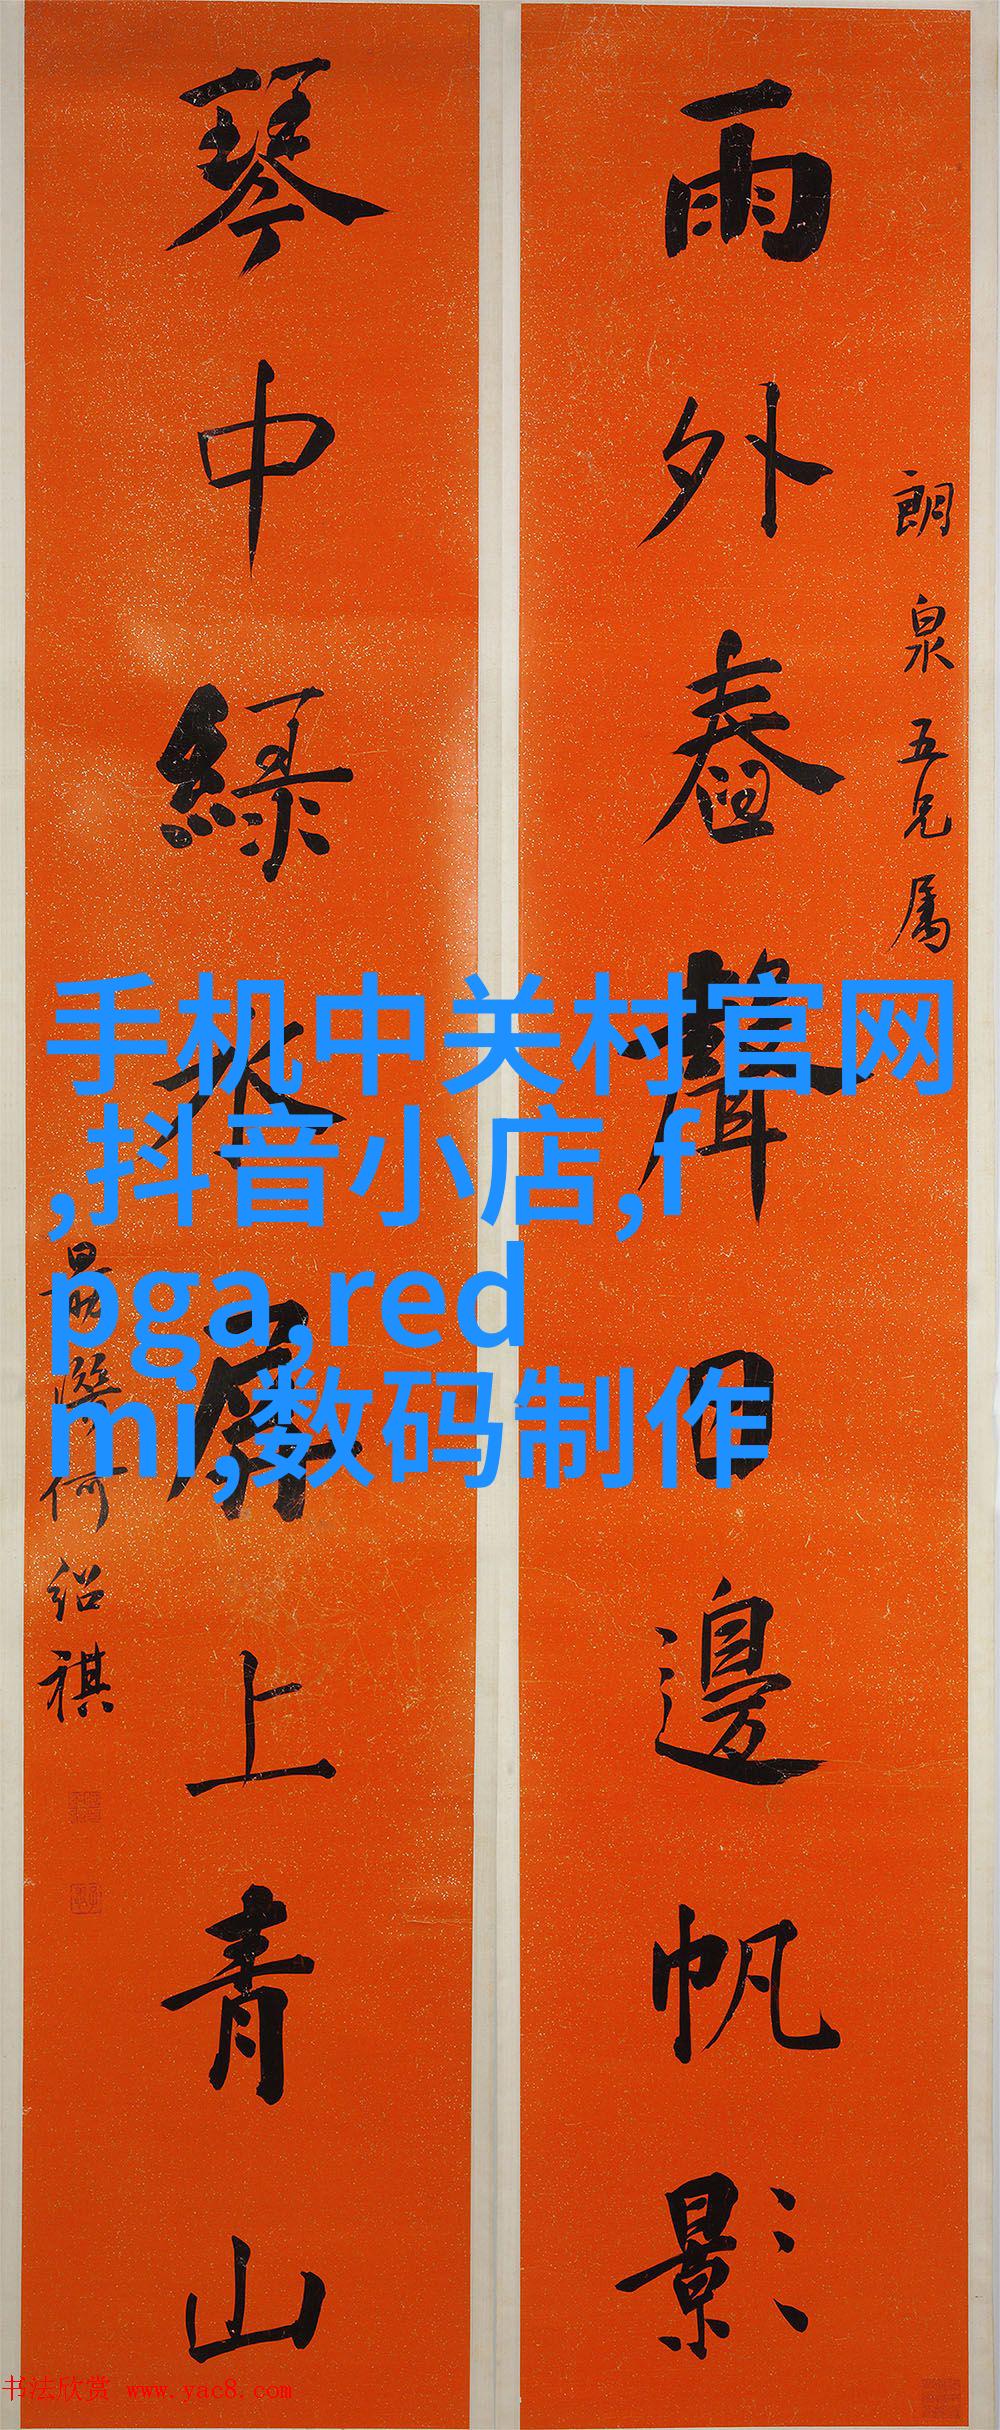 朗泉五兄属
雨外舂聲日邊帆影
琴中綠水屏上青山
何绍祺
手机中关村官网
,抖音小店,f
pga,red
mi,数码制作
书法欣赏 www.yac8.com